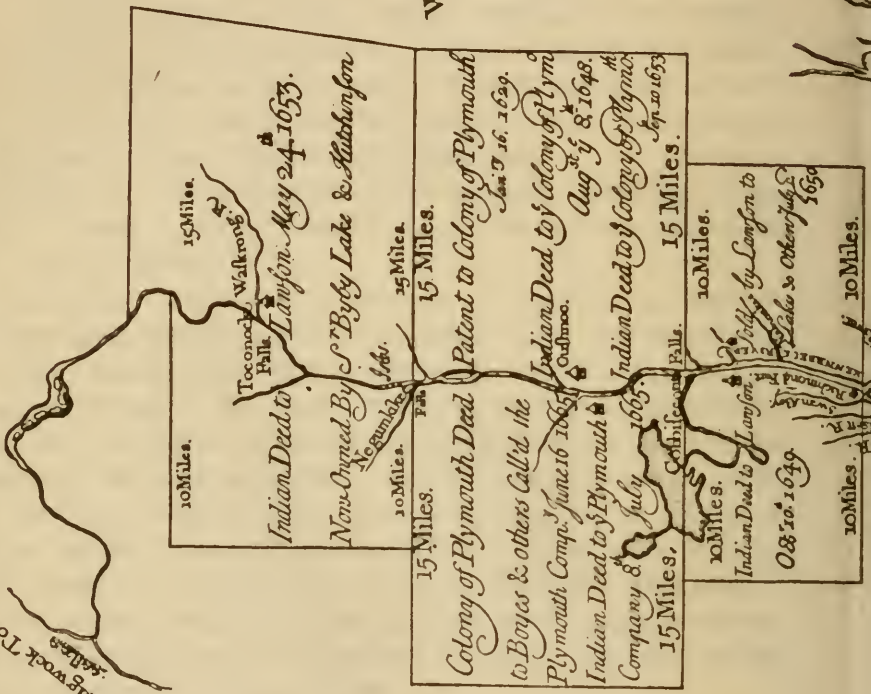 15 Miles.
Walkrong. R
Toconock
Falls.
10 Miles.
Indian Deed to Lawson May 24th 1653.
Now Owned By Sr. Byby Lake & Hutchinson
Negumlake
10 Miles.
15 Miles.
15 Miles.
15 Miles.
Colony of Plymouth Deed
to Boyes & others Call'd the
Plymouth Comp.y June 16 1665
Indian Deed to ye Plymouth
Company 8. July 1665.
15 Miles.
Patent to Colony of Plymouth
Jan.ry 16. 1629.
Indian Deed to ye Colony of Plymo
Augst ye 8, 1648.
Cushnoc.
Indian Deed to ye Colony of Plymoth
Sep. 10 1653
15 Miles.
Falls.
10 Miles.
10 Miles.
Indian Deed to Lawson
Octr. 10. 1649.
Sold by Lawson to
Lake & Others July
1650
KENNEBECK
Richmond
Swan
10 Miles.
10 Miles.